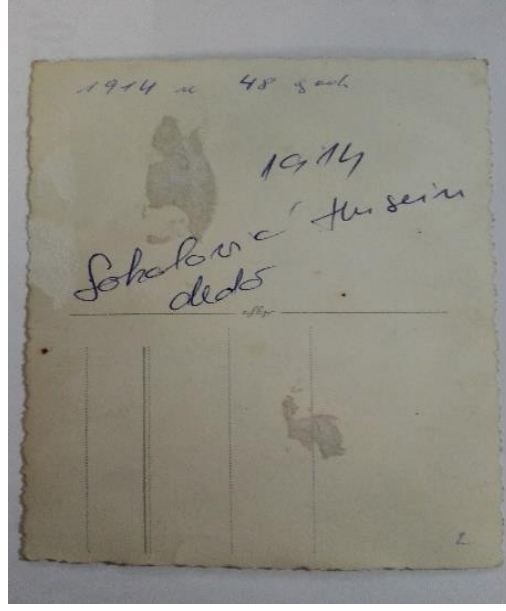 1914 u 48 god
1914
Sokolović Husein
dedo
2